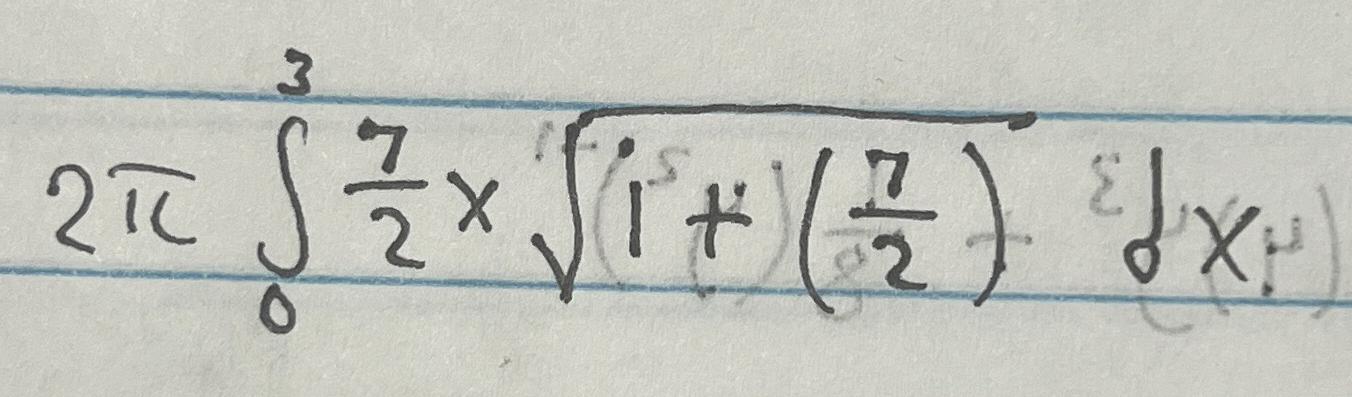 2π ∫₀³ 7/2 x √(1 + (7/2)) dx